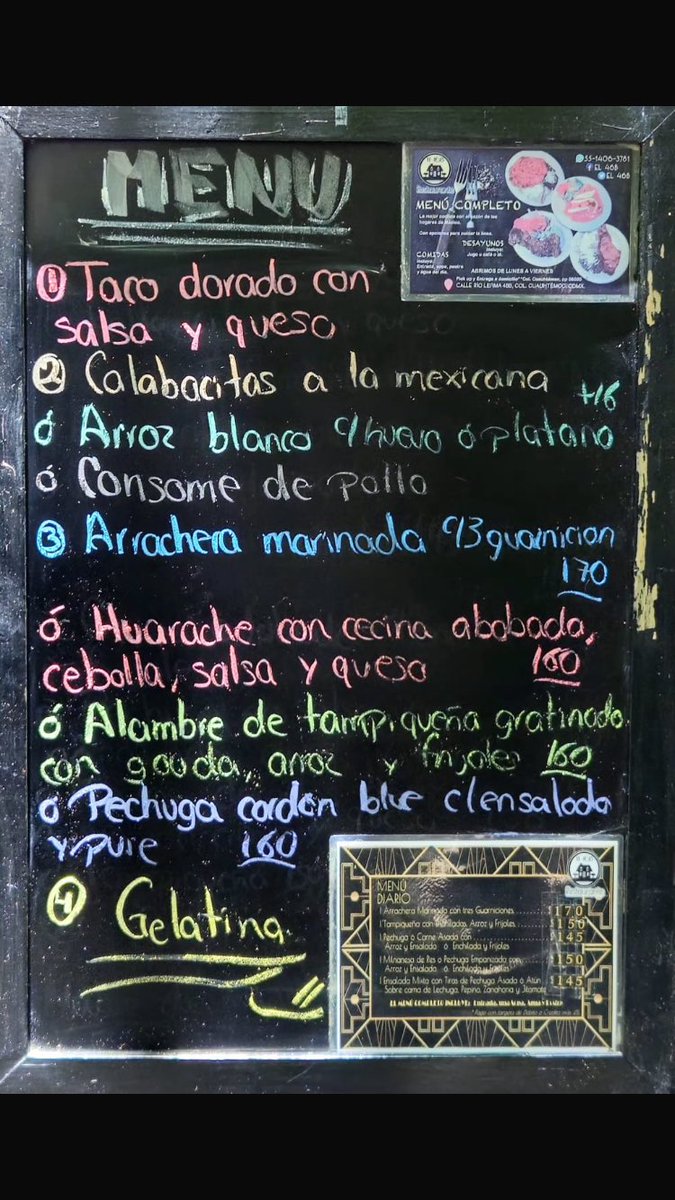 MENU
55-1406-3781
EL 46B
EL 46B
MENÚ COMPLETO
DESAYUNOS
Jugo o café o té.
COMIDAS
Entrada, sopa, postre
y agua del día.
ABRIMOS DE LUNES A VIERNES
CALLE RÍO LERMA 46B, COL. CUAUHTÉMOC, CDMX.
① Taco dorado con
salsa y queso
② Calabacitas a la mexicana
+16
ó Arroz blanco c/huevo ó platano
ó Consome de pollo
③ Arrachera marinada c/3 guarnicion
170
ó Huarache con cecina abobada,
cebolla, salsa y queso 160
ó Alambre de tampiqueña gratinado
con gouda, arroz y frijoles 160
ó Pechuga cordon blue c/ensalada
y pure 160
④ Gelatina
MENÚ
DIARIO
1 Arrachera Marinada con tres Guarniciones $170
1 Tampiqueña con Enchiladas, Arroz y Frijoles $150
1 Pechuga ó Carne Asada con $145
Arroz y Ensalada ó Enchilada y Frijoles
1 Milanesa de Res o Pechuga Empanizada con $150
Arroz y Ensalada ó Enchilada y Frijoles
1 Ensalada Mixta con Tiras de Pechuga Asada ó Atún $145
Sobre cama de Lechuga, Pepino, Zanahoria y Jitomate
EL MENÚ COMPLETO INCLUYE: